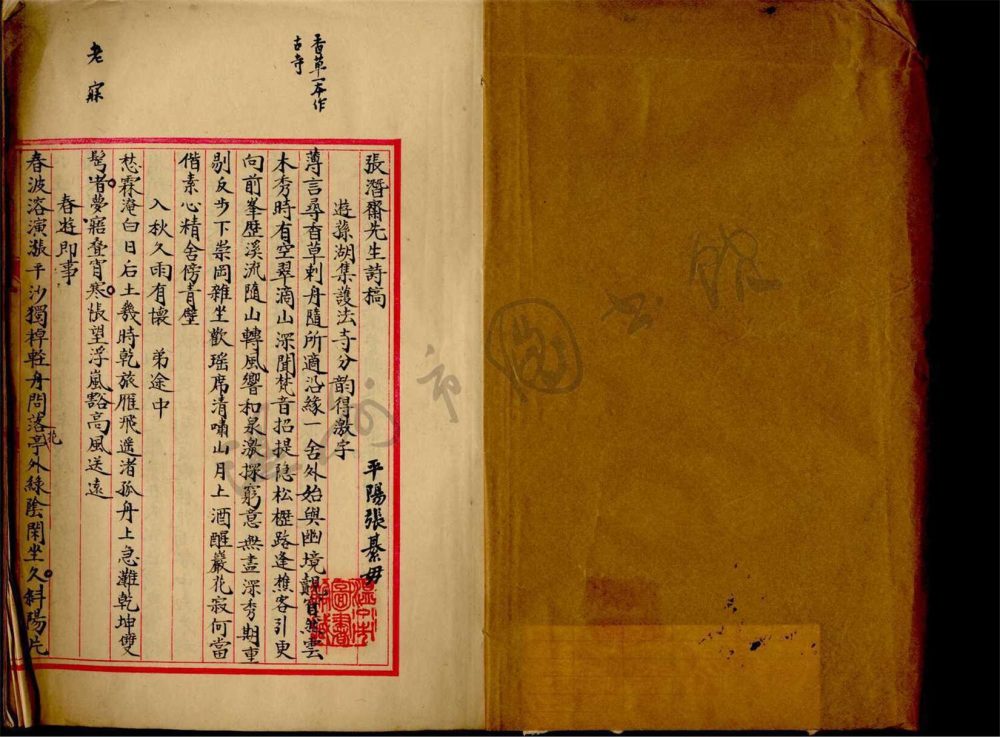 香草一本作
古寺
老寐
張潛齋先生詩稿
平陽張綦毋
遊蓀湖集護法寺分韵得激字
薄言尋香草刺舟隨所適沿緣一舍外始與幽境覿窅然雲
木秀時有空翠滴山深聞梵音招提隐松櫪路逢樵客引更
向前峯歷溪流隨山轉風響和泉激探窮意無盡深秀期重
剔反步下崇岡雜坐歡瑶席清嘯山月上酒醒巖花寂何當
偕素心精舍傍青壁
入秋久雨有懷 弟途中
愁霖淹白日后土幾時乾旅雁飛遥渚孤舟上急灘乾坤雙
鬂渚夢寤叠宵寒悵望浮嵐豁高風送遠
春遊即事
春波溶演漲平沙獨棹輕舟問落花亭外綠陰閑坐久斜陽片
溫州市圖書館
溫州市圖書館藏